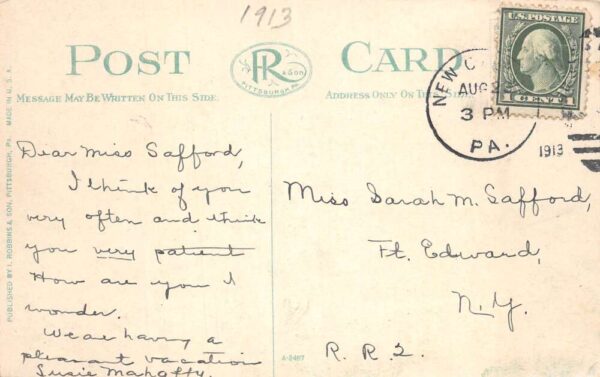 1913
POST CARD
I R & SON
PITTSBURGH, PA.
MESSAGE MAY BE WRITTEN ON THIS SIDE.
ADDRESS ONLY ON THIS SIDE.
U.S. POSTAGE
1 CENT 1
NEW C
AUG 2
3 PM
PA.
1913
PUBLISHED BY I. ROBBINS & SON, PITTSBURGH, PA. MADE IN U.S.A.
Dear Miss Safford,
I think of you
very often and think
you very patient
How are you I
wonder.
We are having a
pleasant vacation
Susie
A-2487
Miss Sarah M. Safford,
Ft. Edward,
N.Y.
R.R.2.